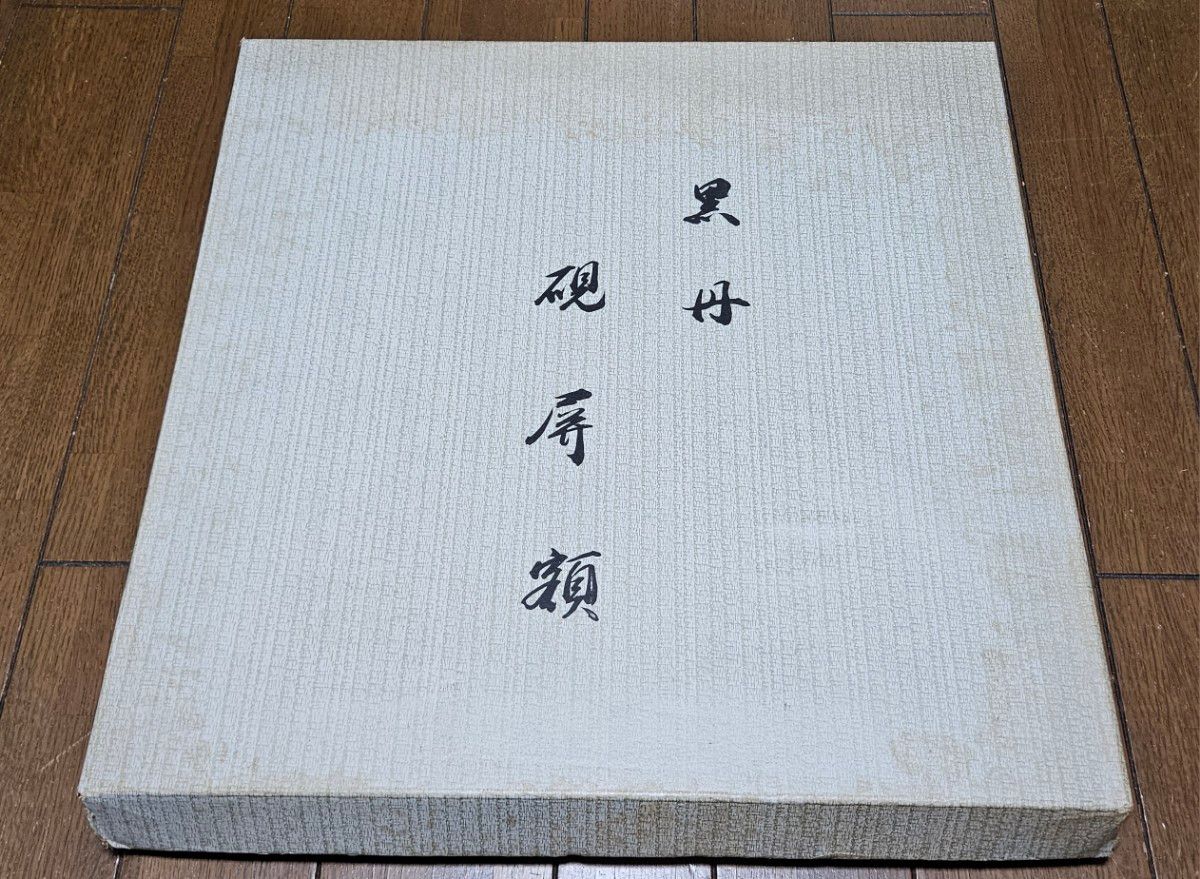 黒丹
硯屏額